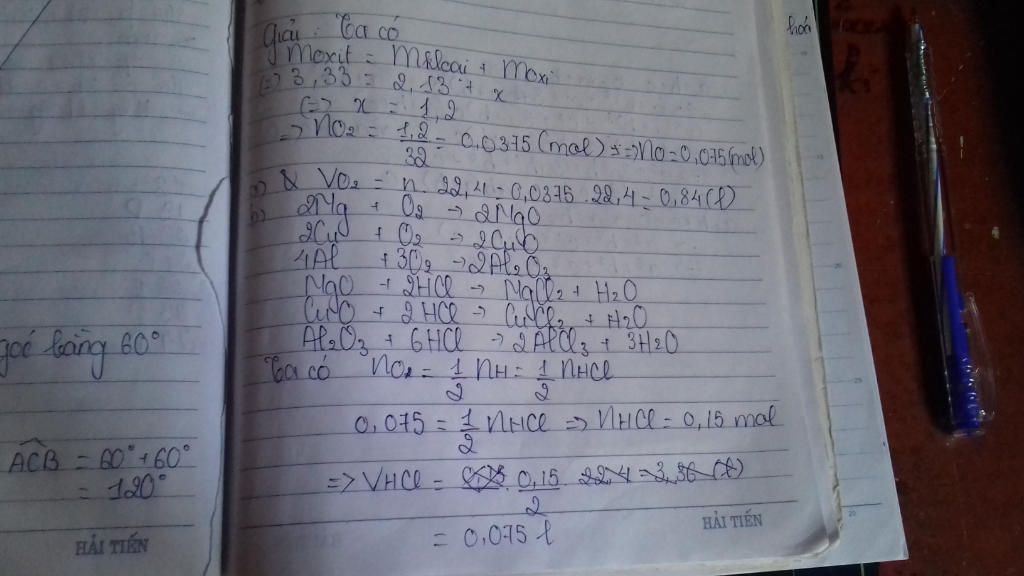 góc bằng 60°
ACB = 60° + 60°
= 120°
HẢI TIẾN
Giải: Ta có
moxit = mkloai + moxi
(=) 3,33 = 2,13 + x
(=> x = 1,2
=> nO2 = 1,2/32 = 0,0375 (mol) => nO = 0,075 (mol)
a) VO2 = n 22,4 = 0,0375 . 22,4 = 0,84 (l)
b) 2Mg + O2 -> 2MgO
2Cu + O2 -> 2CuO
4Al + 3O2 -> 2Al2O3
MgO + 2HCl -> MgCl2 + H2O
CuO + 2HCl -> CuCl2 + H2O
Al2O3 + 6HCl -> 2AlCl3 + 3H2O
Ta có nO = 1/2 nH = 1/2 nHCl
0,075 = 1/2 nHCl => nHCl = 0,15 mol
=> VHCl = 0,15/2 22,4 = 3,36 (l)
= 0,075 l
HẢI TIẾN
hoá